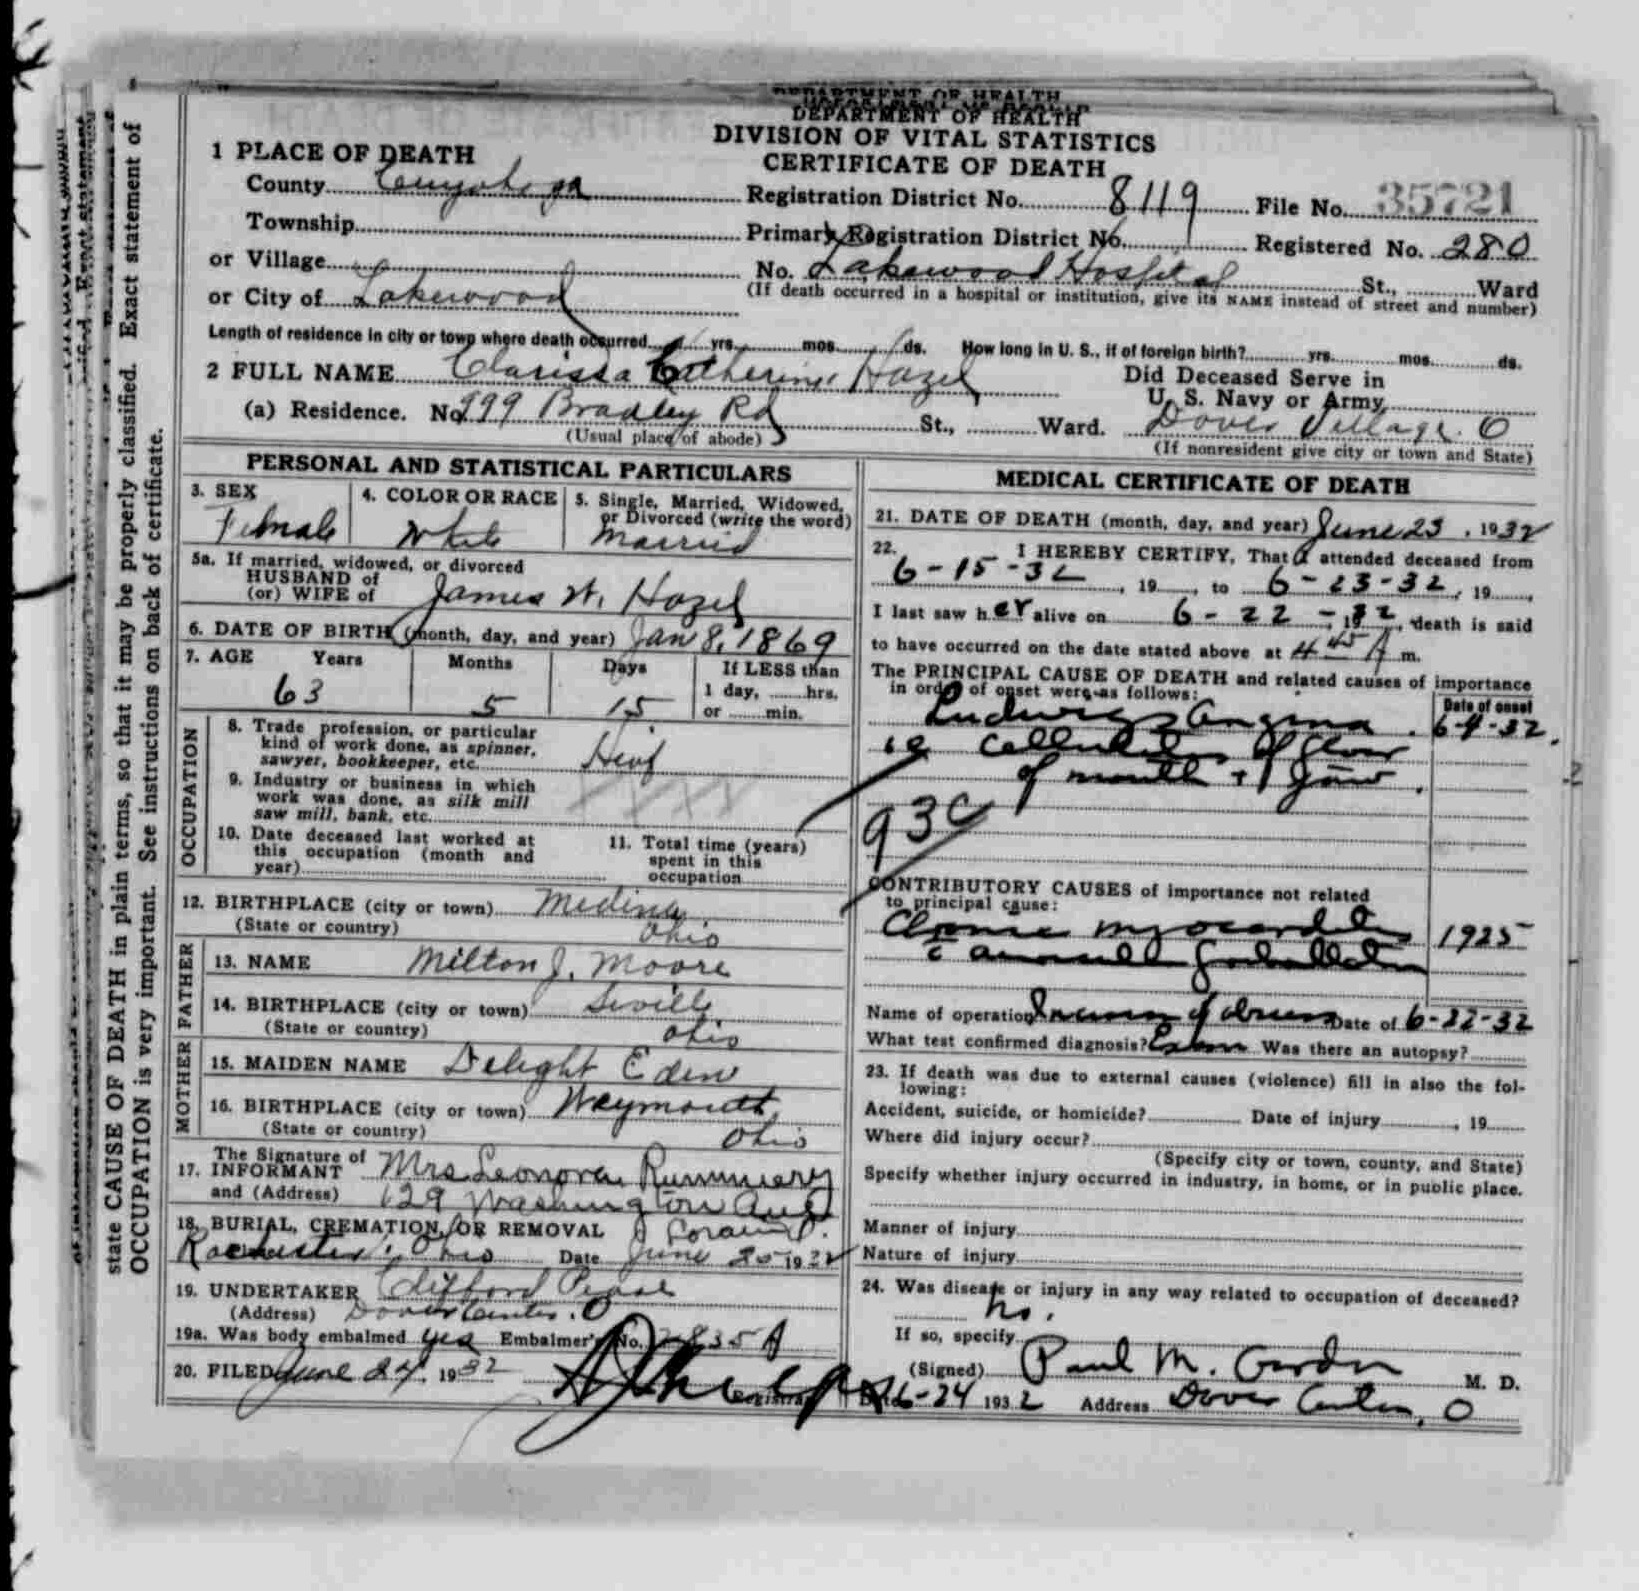 DEPARTMENT OF HEALTH
DIVISION OF VITAL STATISTICS
CERTIFICATE OF DEATH
1 PLACE OF DEATH
County Cuyahoga
Registration District No. 8119 File No. 35721
Township
Primary Registration District No. Registered No. 280
or Village
No. Lakewood Hospital St., Ward
or City of Lakewood
(If death occurred in a hospital or institution, give its NAME instead of street and number)
Length of residence in city or town where death occurred yrs. mos. ds. How long in U. S., if of foreign birth? yrs. mos. ds.
2 FULL NAME Clarissa Catherine Hazel
Did Deceased Serve in
U. S. Navy or Army
(a) Residence. No. 999 Bradley Rd St., Ward. Dover Village. O
(Usual place of abode)
(If nonresident give city or town and State)
PERSONAL AND STATISTICAL PARTICULARS
3. SEX
Female
4. COLOR OR RACE
White
5. Single, Married, Widowed,
or Divorced (write the word)
Married
5a. If married, widowed, or divorced
HUSBAND of
(or) WIFE of James W. Hazel
6. DATE OF BIRTH (month, day, and year) Jan 8, 1869
7. AGE Years Months Days If LESS than
1 day, hrs.
or min.
63 5 15
OCCUPATION
8. Trade, profession, or particular
kind of work done, as spinner,
sawyer, bookkeeper, etc.
9. Industry or business in which
work was done, as silk mill
saw mill, bank, etc.
10. Date deceased last worked at
this occupation (month and
year)
11. Total time (years)
spent in this
occupation
12. BIRTHPLACE (city or town) Medina
(State or country) Ohio
FATHER
13. NAME Milton J. Moore
14. BIRTHPLACE (city or town) Seville
(State or country) Ohio
MOTHER
15. MAIDEN NAME Delight Eden
16. BIRTHPLACE (city or town) Weymouth,
(State or country) Ohio
The Signature of
17. INFORMANT Mrs Leonora Rummery
and (Address) 629 Washington Ave
18. BURIAL, CREMATION, OR REMOVAL Lorain O.
Rochester, Ohio Date June 25 1932
19. UNDERTAKER Clifford Pease
(Address) Dover Center, O
19a. Was body embalmed yes Embalmer's No. 2835A
20. FILED June 24, 1932
Registrar
MEDICAL CERTIFICATE OF DEATH
21. DATE OF DEATH (month, day, and year) June 23, 1932
22. I HEREBY CERTIFY, That I attended deceased from
6-15-32, 19 to 6-23-32, 19
I last saw her alive on 6-22-32, death is said
to have occurred on the date stated above at 4 45 A m.
The PRINCIPAL CAUSE OF DEATH and related causes of importance
in order of onset were as follows:
Date of onset
Ludwigs Angina. 6-4-32.
ie Cellulitis of floor
of mouth + jaw.
93c
CONTRIBUTORY CAUSES of importance not related
to principal cause:
Chronic myocarditis 1925
c auricular fibrillation
Name of operation Date of 6-22-32
What test confirmed diagnosis? Exam Was there an autopsy?
23. If death was due to external causes (violence) fill in also the fol-
lowing:
Accident, suicide, or homicide? Date of injury, 19
Where did injury occur?
(Specify city or town, county, and State)
Specify whether injury occurred in industry, in home, or in public place.
Manner of injury
Nature of injury
24. Was disease or injury in any way related to occupation of deceased?
no.
If so, specify
(Signed) Paul M. M. D.
6-24 1932 Address Dover Center, O
state CAUSE OF DEATH in plain terms, so that it may be properly classified. Exact statement of
OCCUPATION is very important. See instructions on back of certificate.